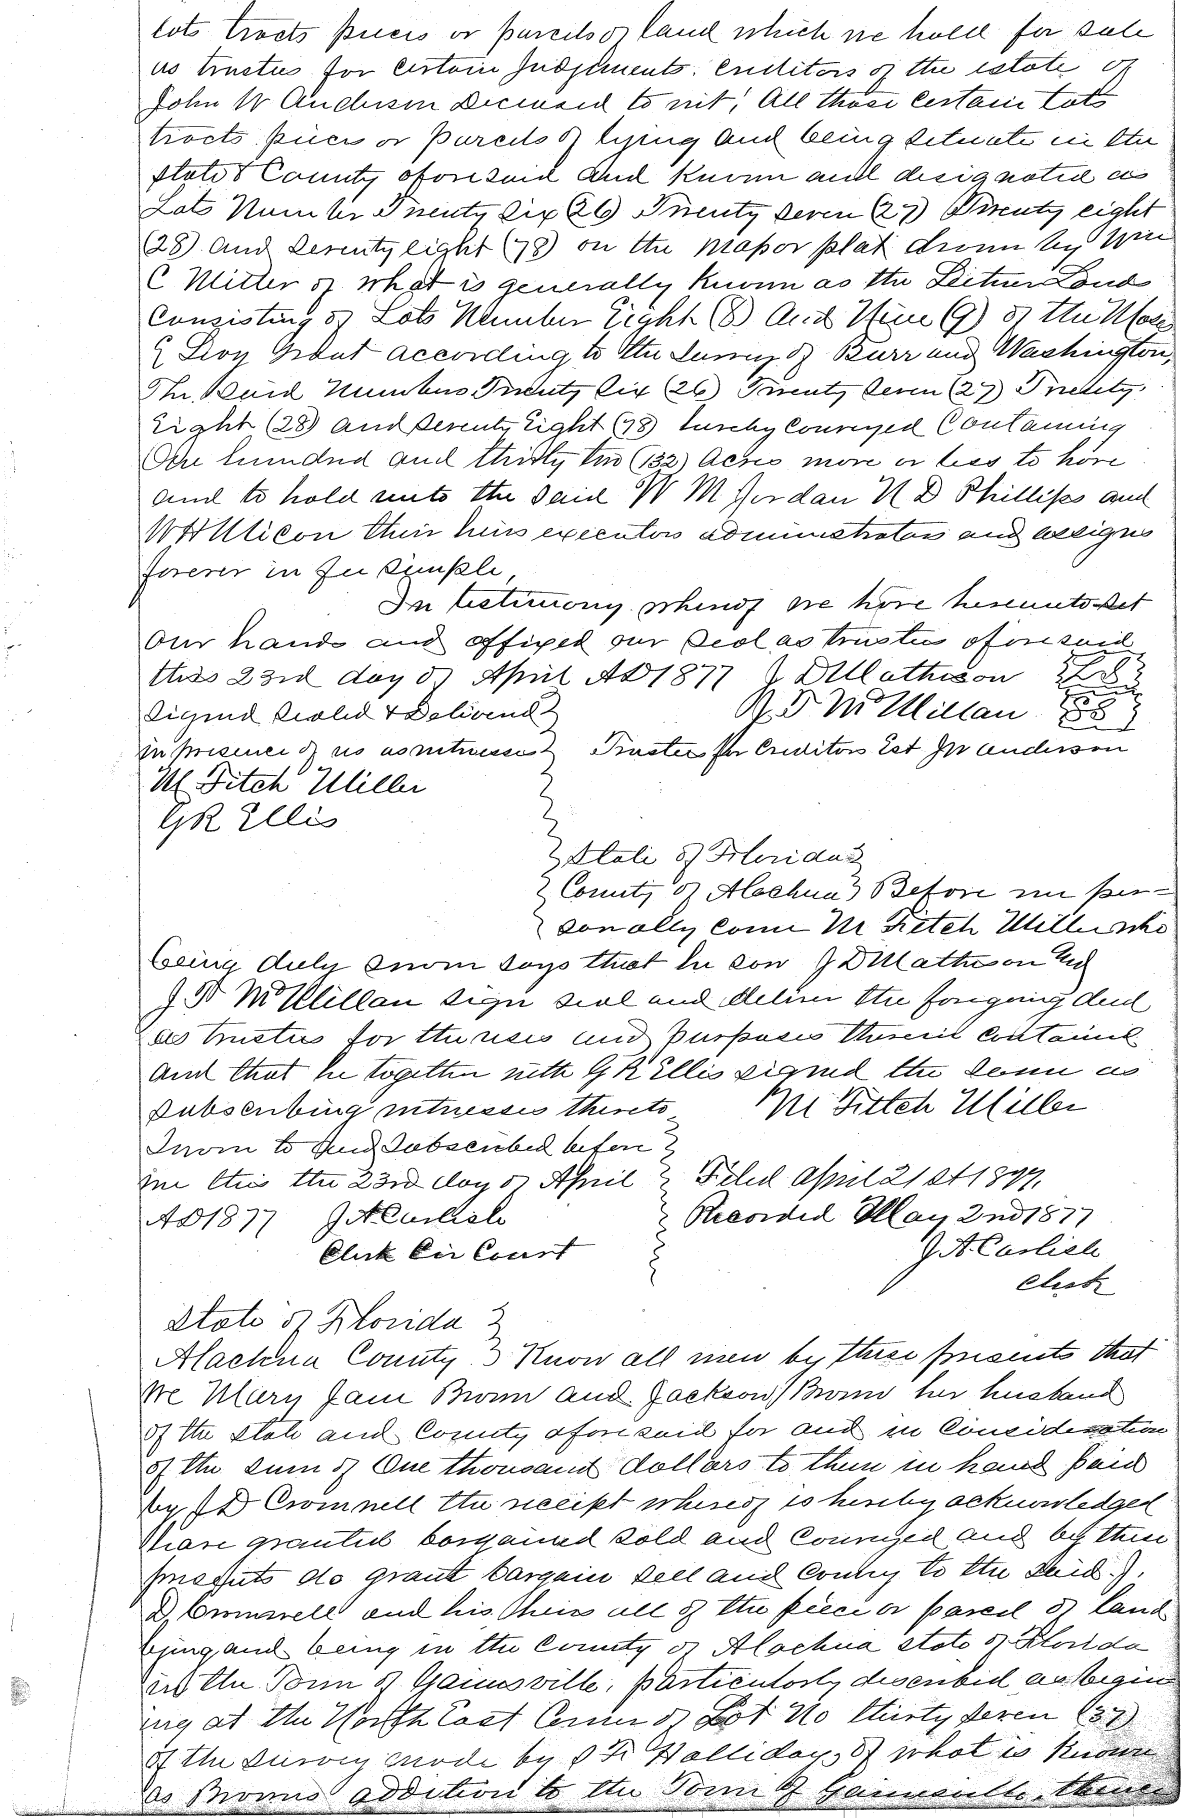 lots tracts pieces or parcels of land which we hold for sale
as trustees for certain Judgements. Creditors of the estate of
John W Anderson Deceased to wit; All those certain Lots
tracts pieces or parcels of lying and being situate in the
state & County aforesaid and known and designated as
Lots Number Twenty Six (26) Twenty Seven (27) Twenty eight
(28) and Seventy eight (78) on the map or plat drawn by Wm
C Miller of what is generally known as the Leitner Lands
Consisting of Lots Number Eight (8) And Nine (9) of the Moses
E Levy Grant according to the Survey of Burr and Washington,
The Said Numbers Twenty Six (26) Twenty Seven (27) Twenty
Eight (28) and Seventy Eight (78) hereby Conveyed Containing
One hundred and thirty two (132) Acres more or less to have
and to hold unto the said W M Jordan N D Phillips and
W H Micon their heirs executors administrators and assigns
forever in fee simple,
In testimony whereof we have hereunto set
our hands and affixed our seal as trustees aforesaid
this 23rd day of April AD 1877 J D Matheson {LS}
Signed Sealed & Delivered } J F McMillan {SS}
in presence of us as witnesses } Trustees for Creditors Est Jw anderson
M. Fitch Miller
G R Ellis
State of Florida }
County of Alachua } Before me per=
sonally come M Fitch Miller who
being duly sworn says that he saw J D Matheson and
J F McMillan sign seal and deliver the foregoing deed
as trustees for the uses and purposes therein contained
and that he together with G R Ellis signed the same as
subscribing witnesses thereto M Fitch Miller
Sworn to and Subscribed before }
me this the 23rd day of April } Filed April 21st 1877.
AD 1877 J A Carlisle } Recorded May 2nd 1877
Clerk Cir Court } J. A. Carlisle
Clerk
State of Florida }
Alachua County } Know all men by these presents that
We Mary Jane Brown and Jackson Brown her husband
of the state and County aforesaid for and in Consideration
of the sum of One thousand dollars to them in hand paid
by J D Cromwell the receipt whereof is hereby acknowledged
have granted bargained sold and conveyed and by these
presents do grant bargain sell and convey to the said J.
D, Cromwell and his heirs all of the piece or parcel of land
lying and being in the County of Alachua state of Florida
in the Town of Gainesville, particularly described as begin
ing at the North East Corner of Lot No thirty seven (37)
of the survey made by S F Halliday, of what is known
as Browns addition to the Town of Gainesville, thence